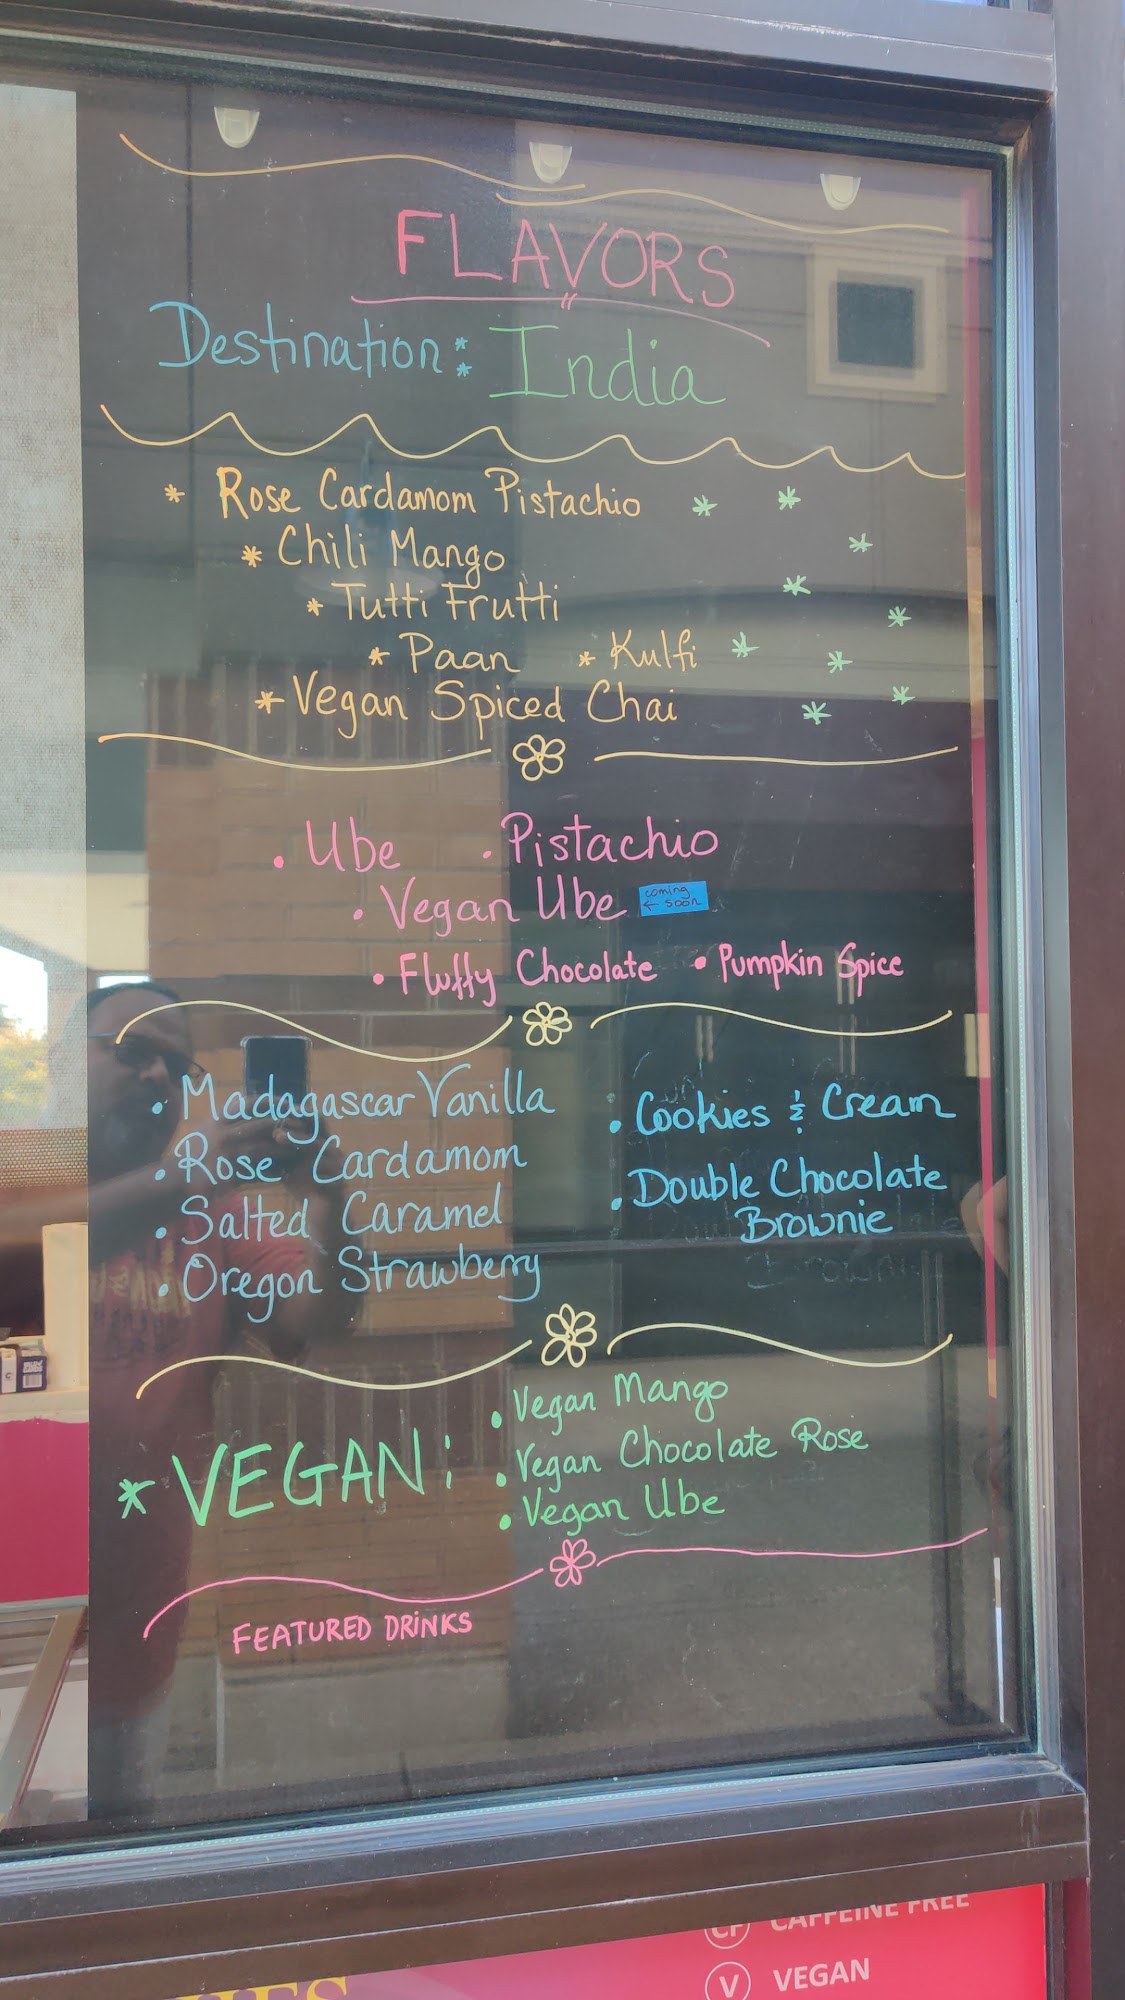 FLAVORS
Destination: India
* Rose Cardamom Pistachio
* Chili Mango
* Tutti Frutti
* Paan * Kulfi
* Vegan Spiced Chai
• Ube • Pistachio
• Vegan Ube
coming
← soon
• Fluffy Chocolate • Pumpkin Spice
• Madagascar Vanilla
• Rose Cardamom
• Salted Caramel
• Oregon Strawberry
• Cookies & Cream
• Double Chocolate
Brownie
* VEGAN:
• Vegan Mango
• Vegan Chocolate Rose
• Vegan Ube
FEATURED DRINKS
CF CAFFEINE FREE
V VEGAN